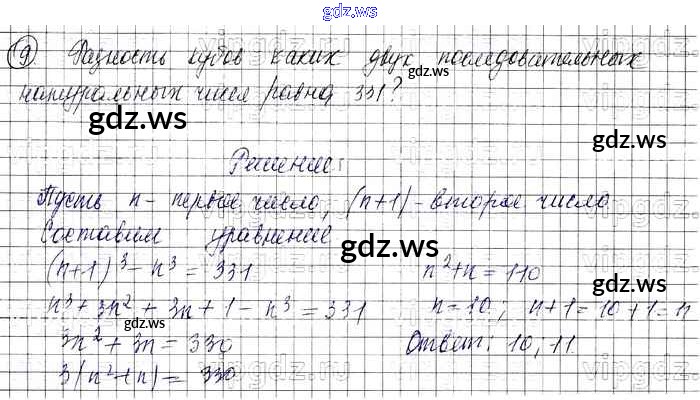 gdz.ws
9 Разность кубов каких двух последовательных
gdz.ws
натуральных чисел равна 331?
gdz.ws
gdz.ws
Решение:
Пусть n - первое число, (n+1) - второе число
Составим уравнение
gdz.ws
(n+1)³ - n³ = 331
n³ + 3n² + 3n + 1 - n³ = 331
gdz.ws
3n² + 3n = 330
3(n² + n) = 330
n² + n = 110
gdz.ws
n = 10; n+1 = 10+1 = 11
Ответ: 10; 11
gdz.ws
gdz.ws